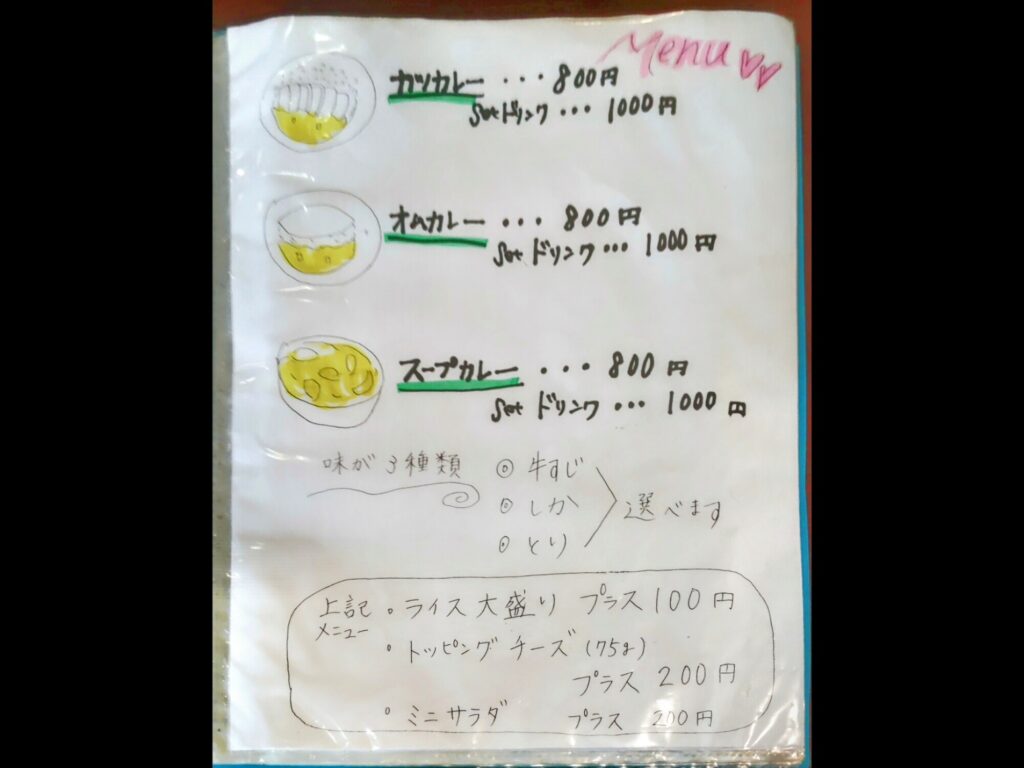 Menu
カツカレー ・・・ 800円
Set ドリンク ・・・ 1000円
オムカレー ・・・ 800円
Set ドリンク ・・・ 1000円
スープカレー ・・・ 800円
Set ドリンク ・・・ 1000円
味が3種類 ◎ 牛すじ
◎ しか
◎ とり
選べます
上記メニュー
。ライス大盛り プラス100円
。トッピングチーズ(75g)
プラス 200円
。ミニサラダ プラス 200円